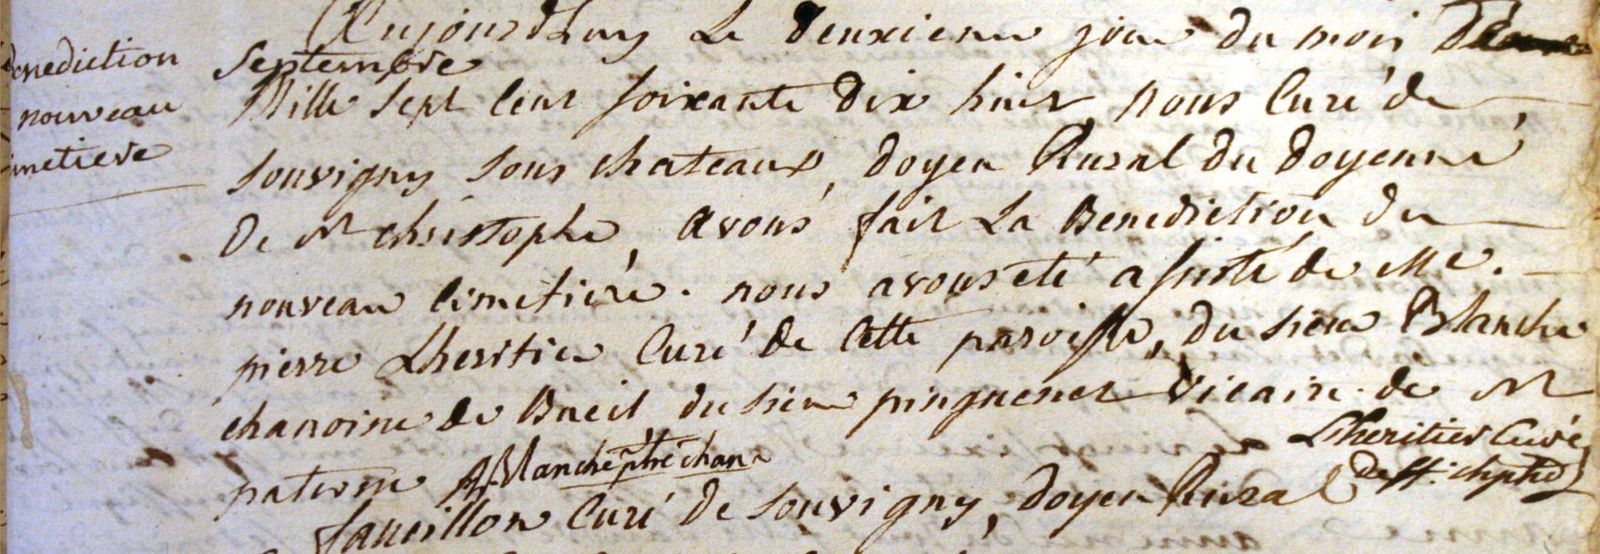 enediction
nouveau
imetiere
Aujourdhuy Le deuxieme jour du mois
septembre
Mille sept cent soixante dix huit, nous Curé de
Souvigny sous chateaux, doyen Rural du doyenné
De St christophe, avons fait La Benediction du
nouveau cimetiére. nous avons eté assisté de Me.
pierre Lheritier Curé de Cette paroisse, du sieur Blanche
chanoine de Bueil du sieur pinguenet Vicaire de St
paterne Blanche ptre chan
Lheritier Curé
de St: chphe
fauvillon Curé de Souvigny, doyen Rural